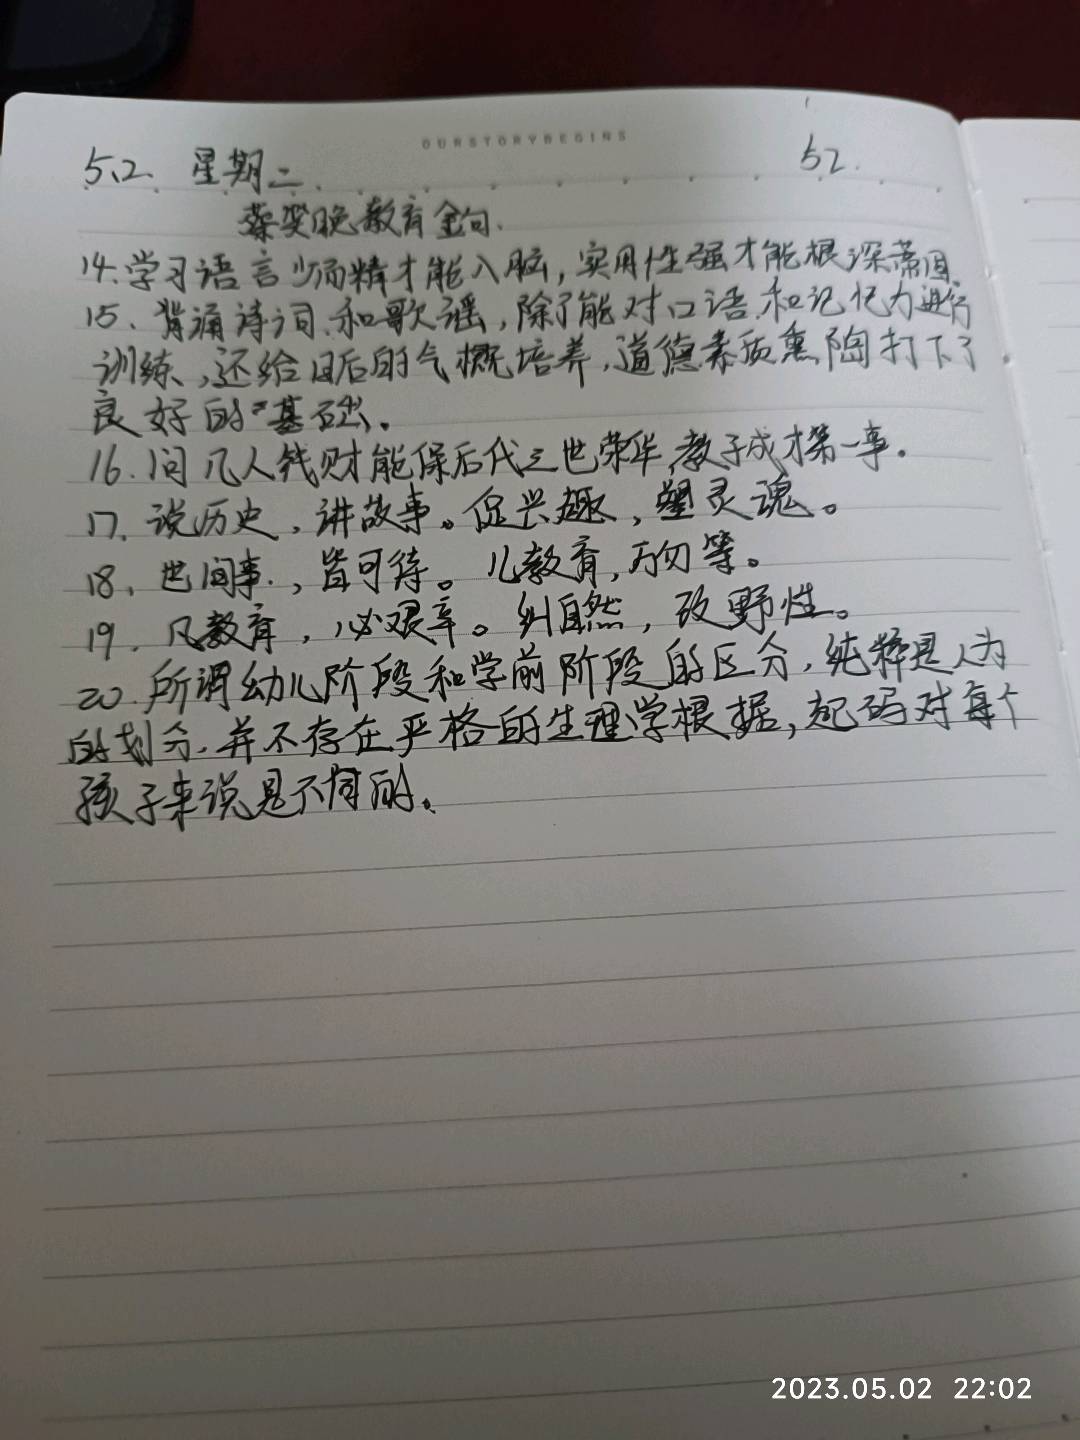 OURSTORYBEGINS
5.2. 星期二. 52.
蔡笑晚教育金句.
14.学习语言少而精才能入脑,实用性强才能根深蒂固.
15、背诵诗词和歌谣,除了能对口语和记忆力进行
训练,还给日后的气概培养,道德素质熏陶打下了
良好的基础。
16.问几人钱财能保后代三世荣华,教子成才第一事.
17.说历史,讲故事。促兴趣,塑灵魂。
18.世间事,皆可待。儿教育,万勿等。
19.凡教育,必艰辛。纠自然,改野性。
20.所谓幼儿阶段和学前阶段的区分,纯粹是人为
的划分.并不存在严格的生理学根据,起码对每个
孩子来说是不同的。
2023.05.02 22:02